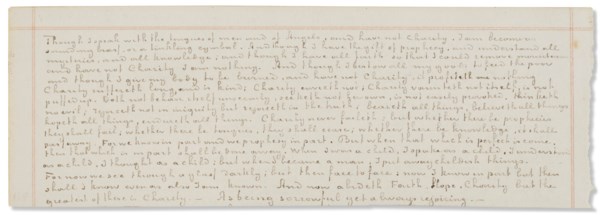 Though I speak with the tongues of men and of Angels, and have not Charity. I am become a
sounding brass, or a tinkling cymbal. And though I have the gift of prophecy, and understand all
mysteries, and all knowledge; and though I have all faith so that I could remove mountains
and have not Charity I am nothing. And though I bestow all my goods to feed the poor
and though I give my body to be burned, and have not Charity, it profiteth me nothing
Charity suffereth long, and is kind; Charity envieth not; Charity vaunteth not itself, is not
puffed up. Doth not behave itself unseemly, seeketh not her own, is not easily provoked, thinketh
no evil; Rejoiceth not in iniquity but rejoiceth in the truth; beareth all things, believeth all things
hopeth all things, endureth all things. Charity never faileth; but whether there be prophecies
they shall fail; whether there be tongues, they shall cease; whether there be knowledge, it shall
pass away. For we know in part and we prophecy in part. But when that which is perfect is come
then that which is in part shall be done away. When I was a child, I spake as a child, I understood
as a child, I thought as a child: but when I became a man, I put away childish things.
For now we see through a glass darkly; but then face to face; now I know in part but then
shall I know even as also I am known. And now abideth Faith, Hope, Charity but the
greatest of these is Charity — As being sorrowful yet always rejoicing —